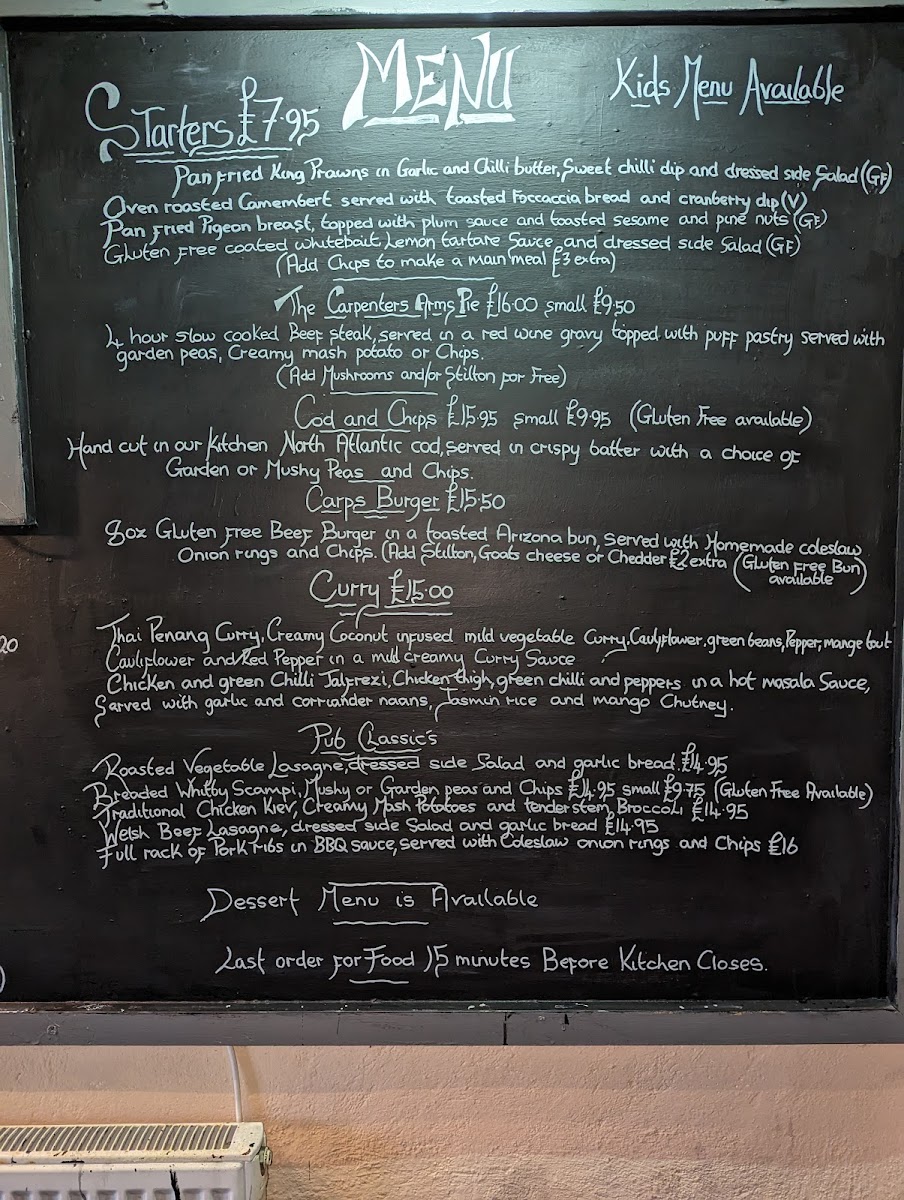 MENU
Kids Menu Available
Starters £7.95
Pan fried King Prawns in Garlic and Chilli butter, Sweet chilli dip and dressed side Salad (GF)
Oven roasted Camembert served with toasted Foccaccia bread and cranberry dip (V)
Pan Fried Pigeon breast, topped with plum sauce and toasted sesame and pine nuts (GF)
Gluten Free coated whitebait, Lemon tartare Sauce and dressed side Salad (GF)
(Add Chips to make a main meal £3 extra)
The Carpenters Arms Pie £16.00 small £9.50
4 hour slow cooked Beef steak, served in a red wine gravy topped with puff pastry served with
garden peas, Creamy mash potato or Chips.
(Add Mushrooms and/or Stilton for Free)
Cod and Chips £15.95 small £9.95 (Gluten Free available)
Hand cut in our Kitchen North Atlantic cod, served in crispy batter with a choice of
Garden or Mushy Peas and Chips.
Carps Burger £15.50
8oz Gluten Free Beef Burger in a toasted Arizona bun, served with Homemade coleslaw
Onion rings and Chips. (Add Stilton, Goats cheese or Chedder £2 extra (Gluten Free Bun
available)
Curry £15.00
Thai Penang Curry, Creamy Coconut infused mild vegetable Curry, Cauliflower, green beans, Pepper, mange tout
Cauliflower and Red Pepper in a mild creamy Curry Sauce
Chicken and green Chilli Jalfrezi, Chicken thigh, green chilli and peppers in a hot masala Sauce,
Served with garlic and corriander naans, Jasmin rice and mango Chutney.
Pub Classic's
Roasted Vegetable Lasagne, dressed side Salad and garlic bread. £14.95
Breaded Whitby Scampi, Mushy or Garden peas and Chips £14.95 small £9.75 (Gluten Free Available)
Traditional Chicken Kiev, Creamy Mash Potatoes and tenderstem Broccoli £14.95
Welsh Beef Lasagne, dressed side Salad and garlic bread £14.95
Full rack of Pork ribs in BBQ sauce, served with Coleslaw onion rings and Chips £16
Dessert Menu is Available
Last order for Food 15 minutes Before Kitchen Closes.
20
)